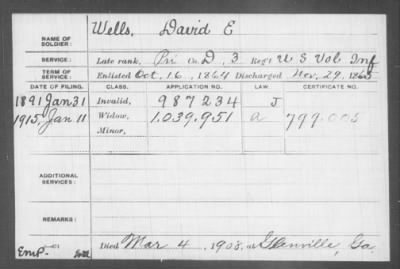 NAME OF SOLDIER: Wells, David E
SERVICE: Late rank, Pri Co. D, 3 Reg't U S Vol Inf
TERM OF SERVICE: Enlisted Oct. 16, 1864 Discharged Nov. 29, 1865
DATE OF FILING. CLASS. APPLICATION NO. LAW. CERTIFICATE NO.
1891 Jan 31 Invalid, 987234 J
1915, Jan 11 Widow, 1,039,951 a 799.003
Minor,
ADDITIONAL SERVICES:
REMARKS:
Died Mar 4, 1908, at Glenville, Ga.